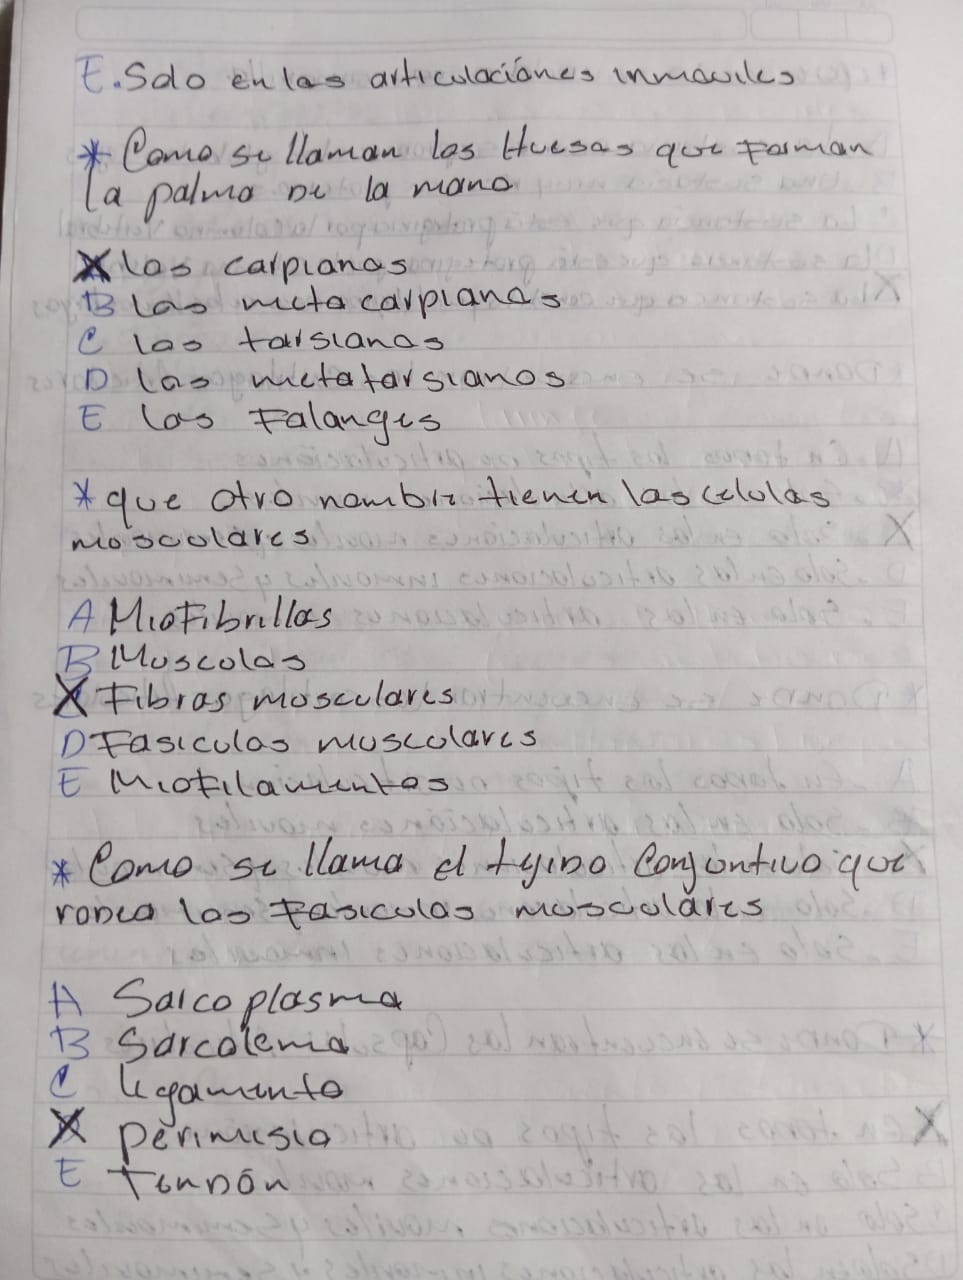 E. Solo en las articulaciones inmoviles
* Como se llaman los Huesos que Forman
la palma De la mano
X los carpianos
B los metacarpianos
C los tarsianos
D los metatarsianos
E los Falanges
* que otro nombre tienen las celulas
mosculares
A Miofibrillas
B Musculos
X Fibras mosculares
D Fasiculos musculares
E Miofilamentos
* Como se llama el tejido Conjuntivo que
rodea los Fasiculos mosculares
A Sarcoplasma
B Sarcolema
C ligamento
X perimisio
E Tendón